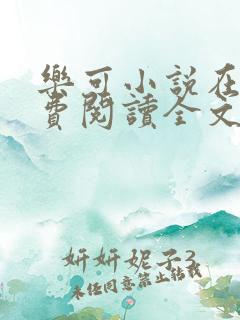 樂可小說在
費閱讀全文
妍妍妮子3
未经同意禁止转载